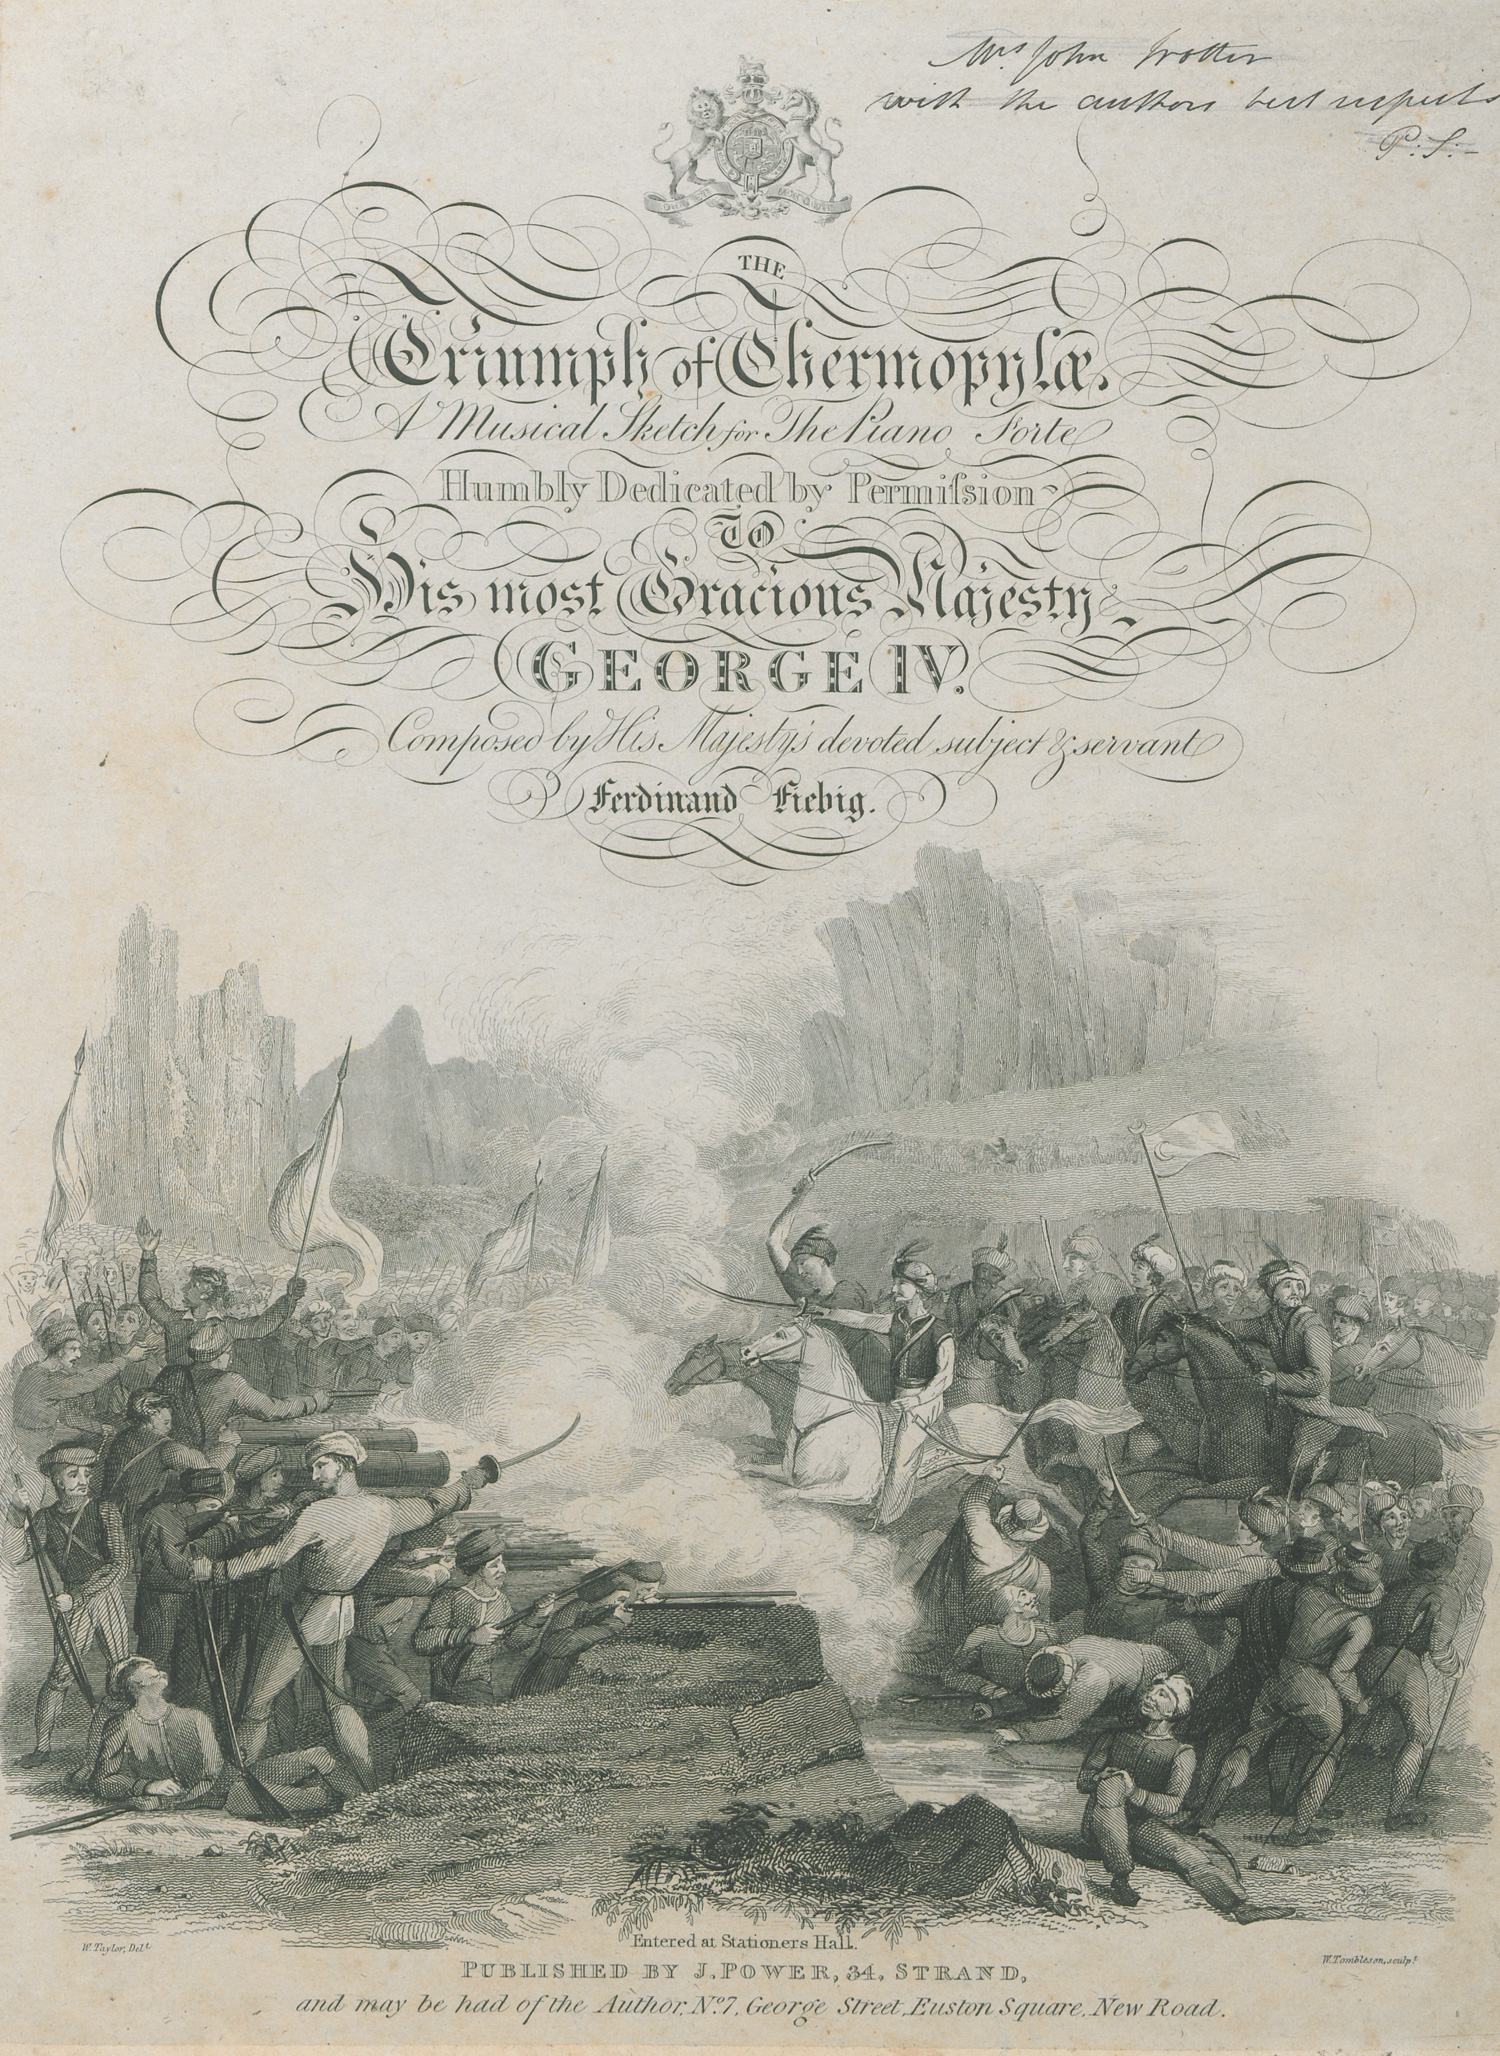 Mrs John Trotter
with the authors best respects
P: S:-
THE
Triumph of Thermopylæ.
A Musical Sketch for The Piano Forte
Humbly Dedicated by Permiſsion
TO
His most Gracious Majesty
GEORGE IV.
Composed by His Majesty's devoted subject & servant
Ferdinand Fiebig.
W. Taylor, Delt.
Entered at Stationers Hall.
W. Tombleson, sculpt.
PUBLISHED BY J. POWER, 34, STRAND,
and may be had of the Author, No. 7, George Street, Euston Square, New Road.